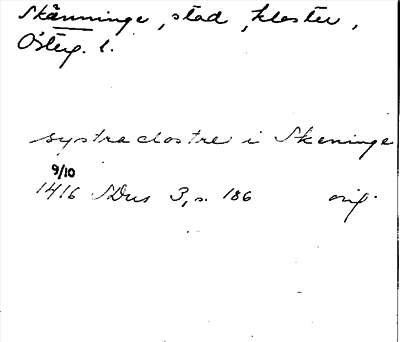 Skänninge, stad, kloster,
Österg. l.
systraclostre i Skeninge
9/10
1416 SDns 3, s. 186 orig.